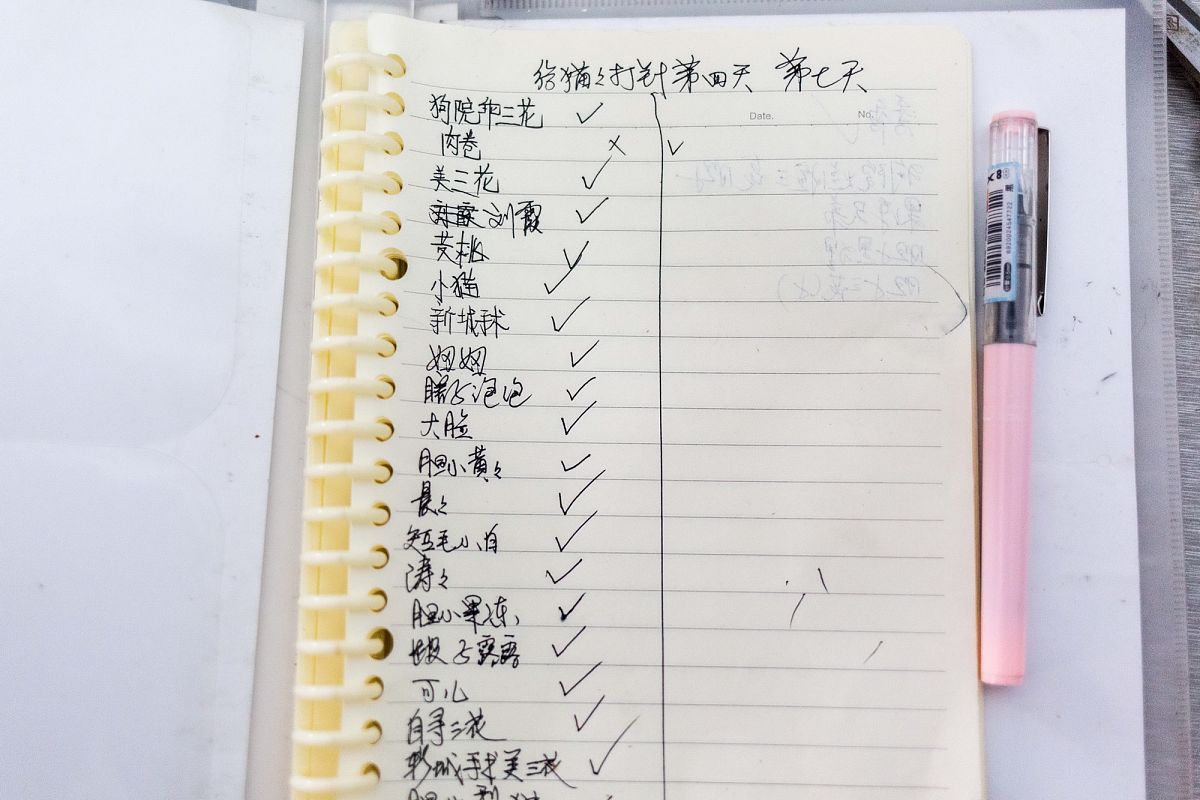 给猫々打针第四天 第七天
Date. No.
狗院卵三花 ✓
肉卷 × ✓
美三花 ✓
刘霞 ✓
黄桃 ✓
小猫 ✓
新城手术 ✓
妞妞 ✓
泡泡 ✓
大脸 ✓
胆小黄々 ✓
晨々 ✓
短毛小白 ✓
涛々 ✓
胆小果冻 ✓
露露 ✓
可儿 ✓
自寻三花 ✓
新城手术美三花 ✓
胆小